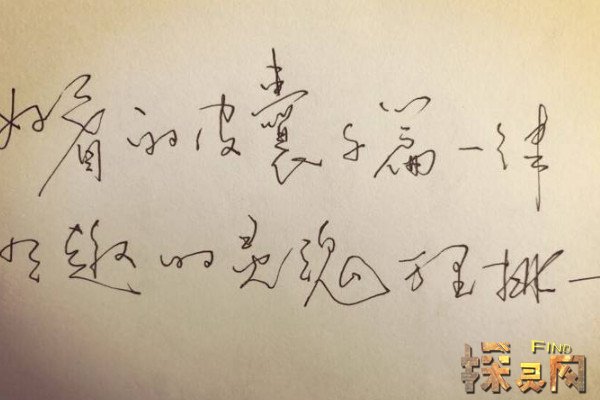 好看的皮囊千篇一律
有趣的灵魂万里挑一
FIND
探灵网